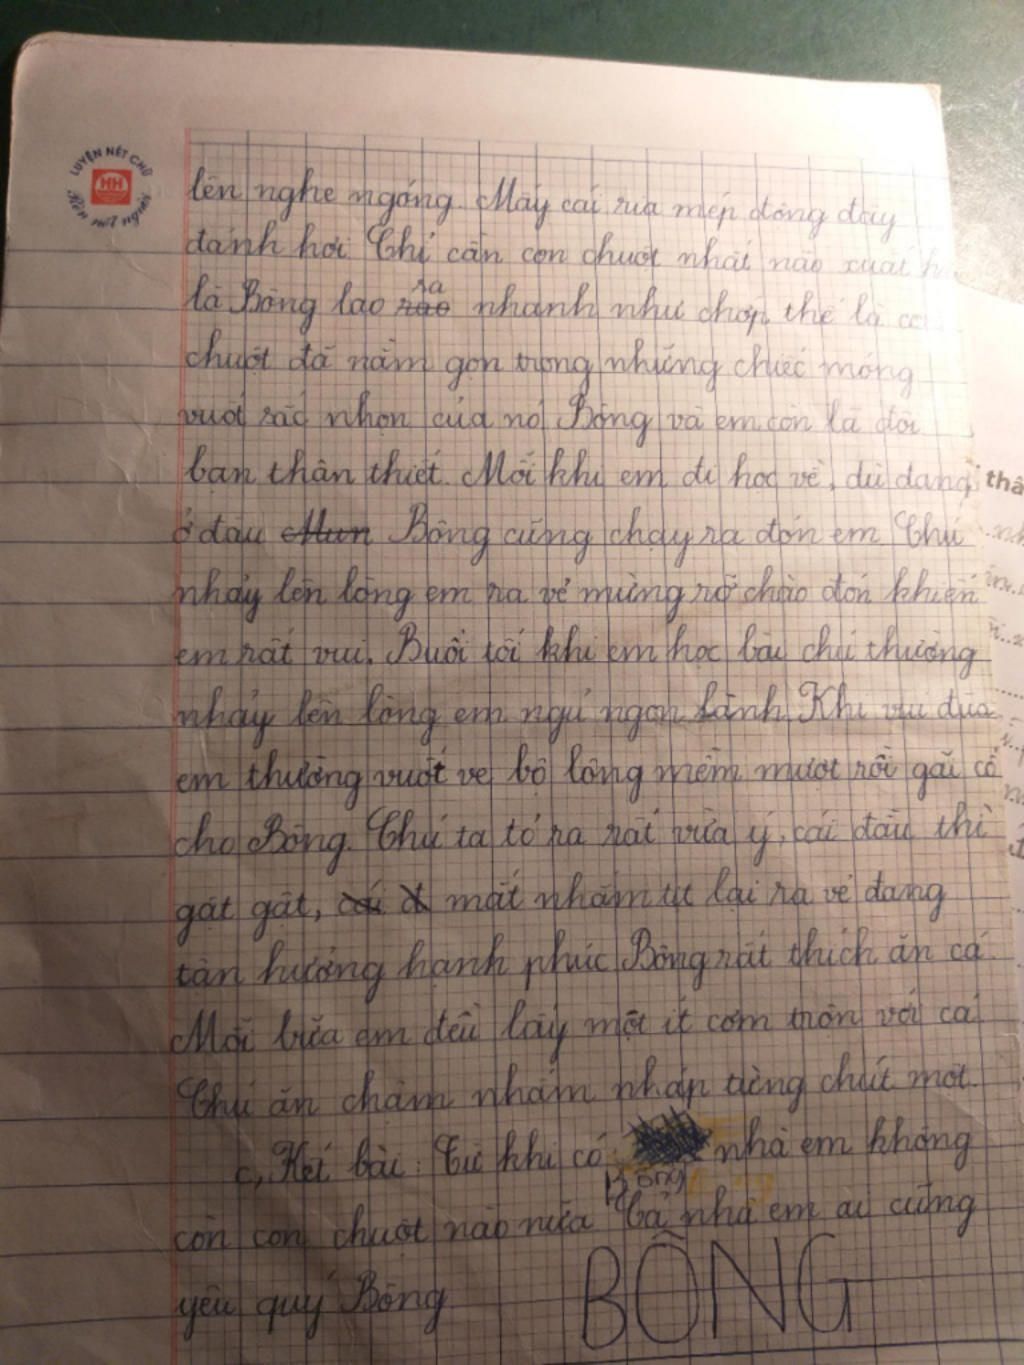 LUYỆN NÉT CHỮ
HH
Rèn nết người
lên nghe ngóng. Mấy cái ria mép động đậy
đánh hơi Chỉ cần con chuột nhắt nào xuất
là Bông lao rào ra nhanh như chớp thế là con
chuột đã nằm gọn trong những chiếc móng
vuốt sắc nhọn của nó Bông và em còn là đôi
bạn thân thiết. Mỗi khi em đi học về, dù đang
ở đâu Mun Bông cũng chạy ra đón em Chú
nhảy lên lòng em ra vẻ mừng rỡ chào đón khiến
em rất vui. Buổi tối khi em học bài chú thường
nhảy lên lòng em ngủ ngon lành Khi vui đùa
em thường vuốt ve bộ lông mềm mượt rồi gãi cổ
cho Bông. Chú ta tỏ ra rất vừa ý, cái đầu thì
gật gật, cái đ mắt nhắm tịt lại ra vẻ đang
tận hưởng hạnh phúc Bông rất thích ăn cá
Mỗi bữa em đều lấy một ít cơm trộn với cá
Chú ăn chậm nhấm nháp từng chút một.
c, Kết bài: Từ khi có Bông nhà em không
còn con chuột nào nữa Cả nhà em ai cũng
yêu quý Bông
BÔNG
thâ